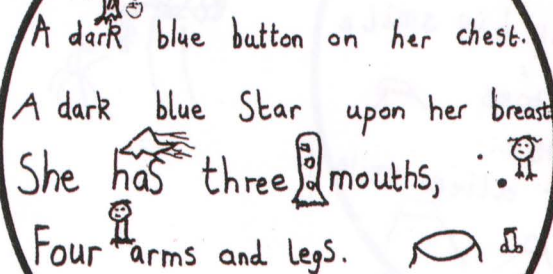 A dark blue button on her chest.
A dark blue Star upon her breast
She has three mouths,
Four arms and legs.